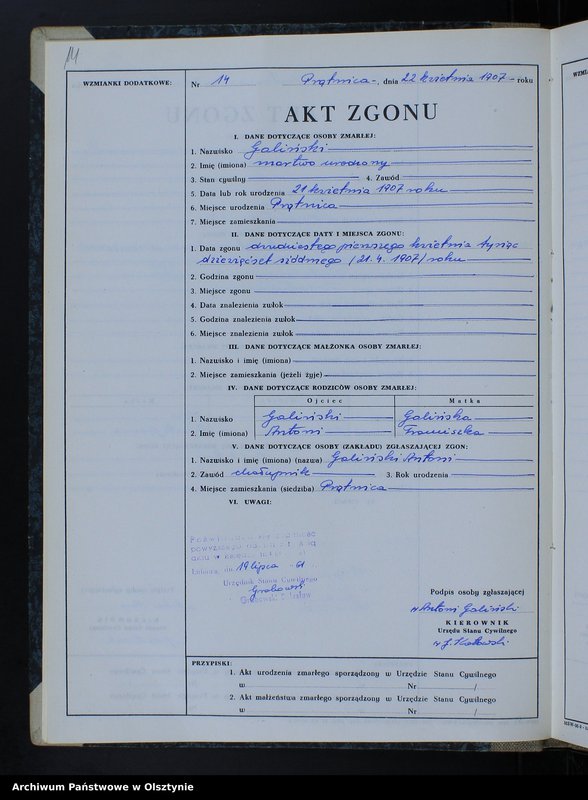 14
WZMIANKI DODATKOWE:
Nr 14 Prątnica -, dnia 22 kwietnia 1907 - roku
AKT ZGONU
I. DANE DOTYCZĄCE OSOBY ZMARŁEJ:
1. Nazwisko Galiński
2. Imię (imiona) martwo urodzony
3. Stan cywilny 4. Zawód
5. Data lub rok urodzenia 21 kwietnia 1907 roku
6. Miejsce urodzenia Prątnica
7. Miejsce zamieszkania
II. DANE DOTYCZĄCE DATY I MIEJSCA ZGONU:
1. Data zgonu dwudziestego pierwszego kwietnia tysiąc
dziewięćset siódmego /21.4.1907/ roku
2. Godzina zgonu
3. Miejsce zgonu
4. Data znalezienia zwłok
5. Godzina znalezienia zwłok
6. Miejsce znalezienia zwłok
III. DANE DOTYCZĄCE MAŁŻONKA OSOBY ZMARŁEJ:
1. Nazwisko i imię (imiona)
2. Miejsce zamieszkania (jeżeli żyje)
IV. DANE DOTYCZĄCE RODZICÓW OSOBY ZMARŁEJ:
Ojciec Matka
1. Nazwisko Galiński Galińska
2. Imię (imiona) Antoni Franciszka
V. DANE DOTYCZĄCE OSOBY (ZAKŁADU) ZGŁASZAJĄCEJ ZGON:
1. Nazwisko i imię (imiona) (nazwa) Galiński Antoni
2. Zawód chałupnik 3. Rok urodzenia
4. Miejsce zamieszkania (siedziba) Prątnica
VI. UWAGI:
19 lipca 61
Urzędnik Stanu Cywilnego
Grabowski
Podpis osoby zgłaszającej
Antoni Galiński
KIEROWNIK
Urzędu Stanu Cywilnego
PRZYPISKI:
1. Akt urodzenia zmarłego sporządzony w Urzędzie Stanu Cywilnego
w Nr /
2. Akt małżeństwa zmarłego sporządzony w Urzędzie Stanu Cywilnego
w Nr /
Archiwum Państwowe w Olsztynie